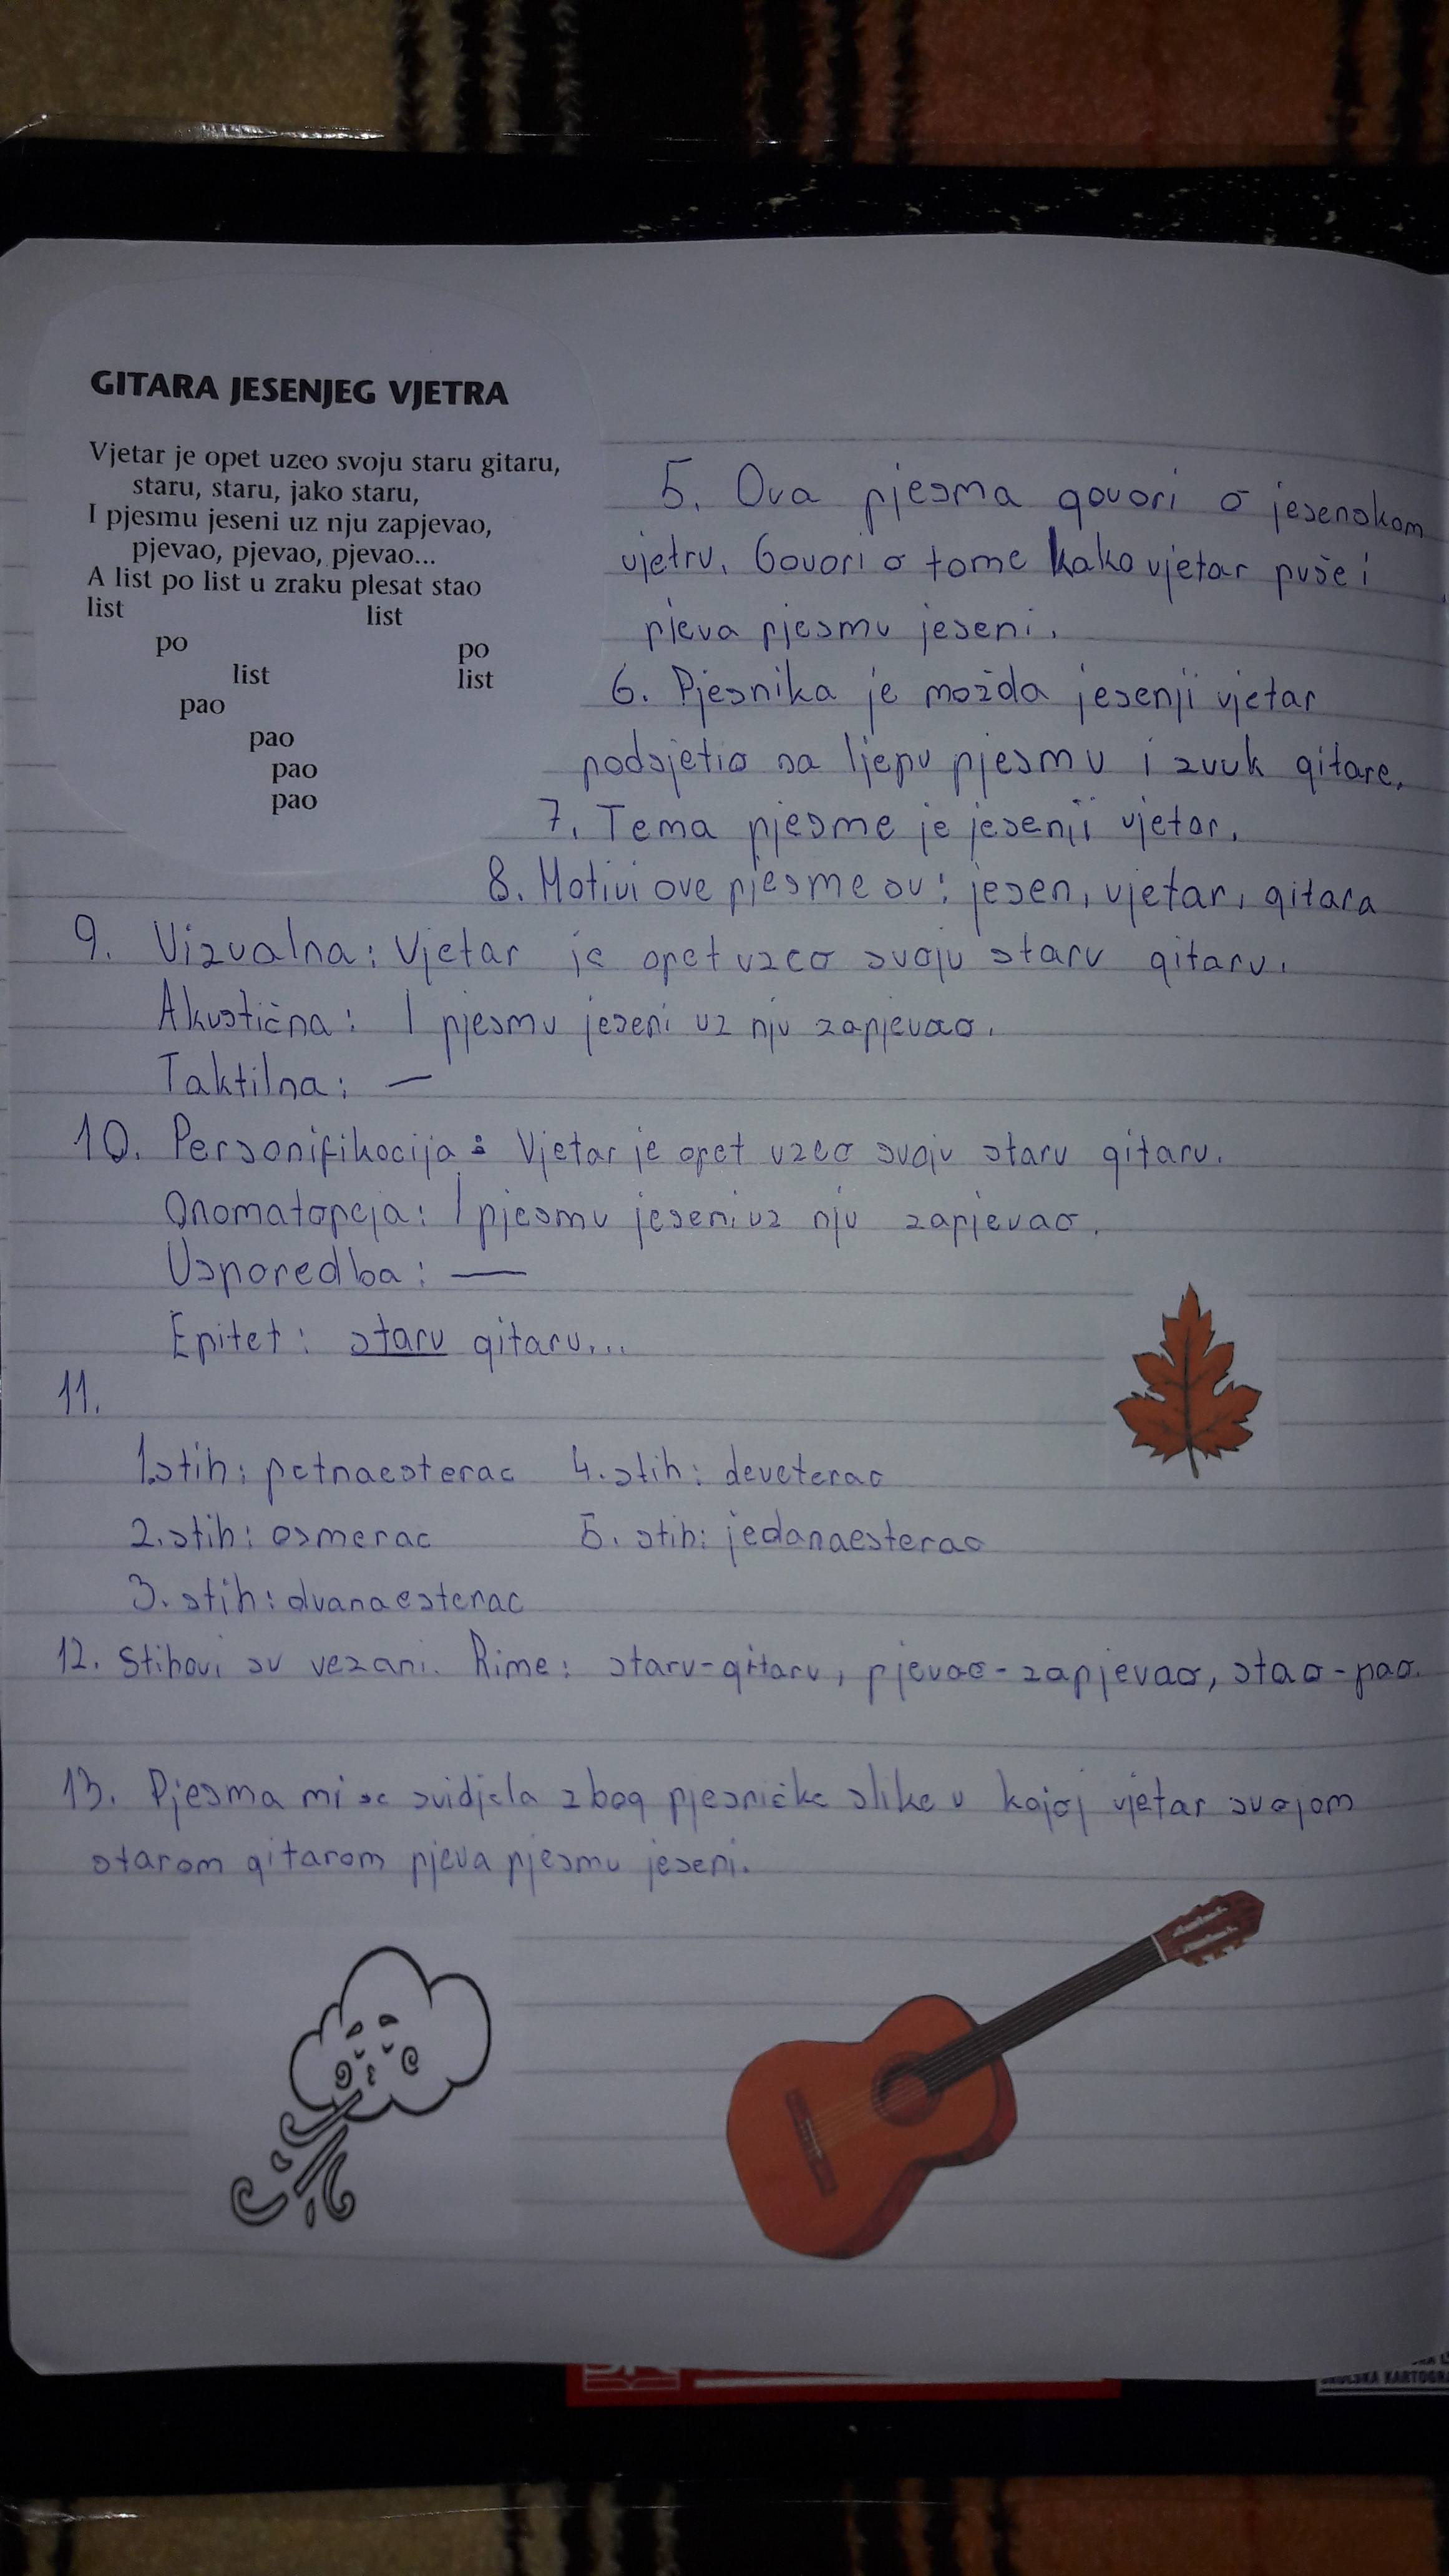 GITARA JESENJEG VJETRA
Vjetar je opet uzeo svoju staru gitaru,
staru, staru, jako staru,
I pjesmu jeseni uz nju zapjevao,
pjevao, pjevao, pjevao...
A list po list u zraku plesat stao
list list
po po
list list
pao
pao
pao
pao
5. Ova pjesma govori o jesenskom
vjetru. Govori o tome kako vjetar puše i
pjeva pjesmu jeseni.
6. Pjesnika je možda jesenji vjetar
podsjetio na ljepu pjesmu i zvuk gitare.
7. Tema pjesme je jesenji vjetar.
8. Motivi ove pjesme su: jesen, vjetar, gitara
9. Vizualna: Vjetar je opet uzeo svoju staru gitaru.
Akustična: I pjesmu jeseni uz nju zapjevao.
Taktilna: —
10. Personifikacija: Vjetar je opet uzeo svoju staru gitaru.
Onomatopeja: I pjesmu jeseni uz nju zapjevao.
Usporedba: —
Epitet: staru gitaru...
11.
1. stih: petnaesterac 4. stih: deveterac
2. stih: osmerac 5. stih: jedanaesterac
3. stih: dvanaesterac
12. Stihovi su vezani. Rime: staru-gitaru, pjevao-zapjevao, stao-pao.
13. Pjesma mi se svidjela zbog pjesničke slike u kojoj vjetar svojom
starom gitarom pjeva pjesmu jeseni.